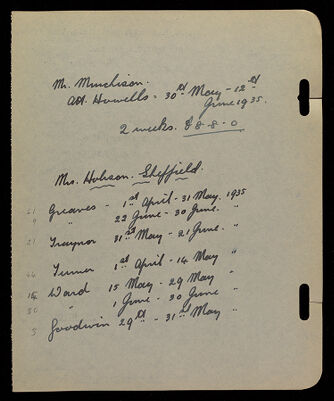 Mr. Murchison.
Att. Howells - 30th May - 12th
June 1935.
2 weeks. £8-8-0
Mrs. Hobson. Sheffield.
61 Greaves - 1st April - 31 May. 1935
9 " 22 June - 30 June. "
21 Traynor 31st May - 21 June. "
44 Turner 1st April - 14 May "
15 Ward 15 May - 29 May "
30 " 1 June - 30 June "
3 Goodwin 29th - 31st May "